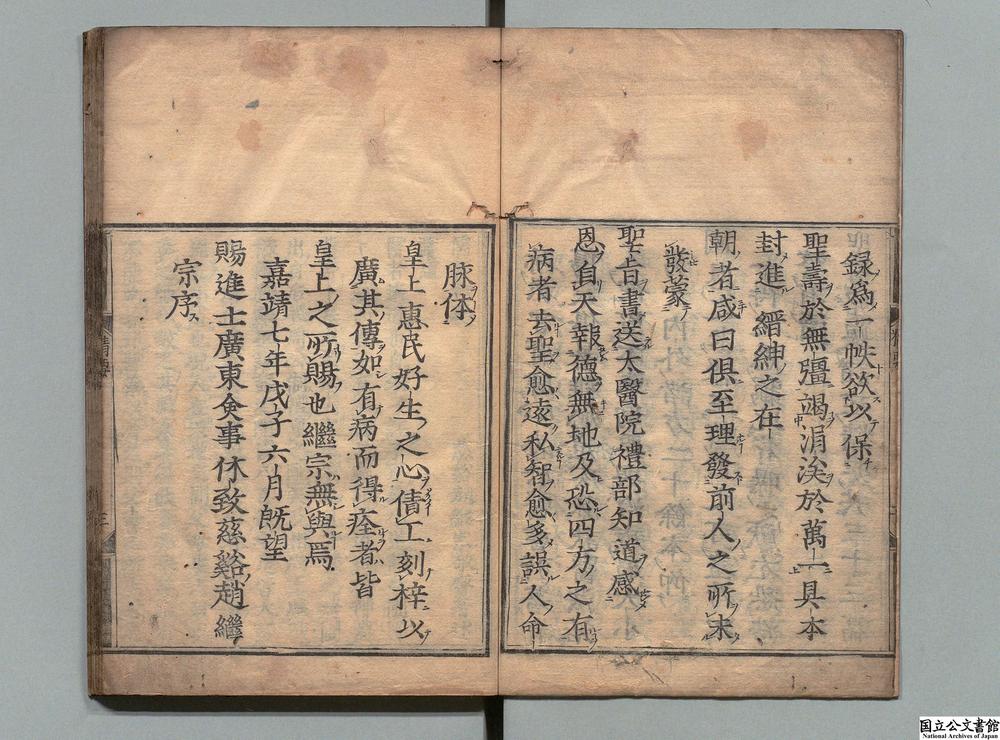 録爲一帙欲以保
聖壽於無彊竭涓涘於萬一具本
封進縉紳之在
朝者咸曰俱至理發前人之所未
發蒙
聖旨書送太醫院禮部知道感
恩自天報德無地及恐四方之有
病者去聖愈遠私智愈多誤人命
脉体
皇上惠民好生之心倩工刻梓以
廣其傳如有病而得痊者皆
皇上之所賜也繼宗無與焉
嘉靖七年戊子六月既望
賜進士廣東僉事休致慈谿趙繼
宗序
国立公文書館
National Archives of Japan